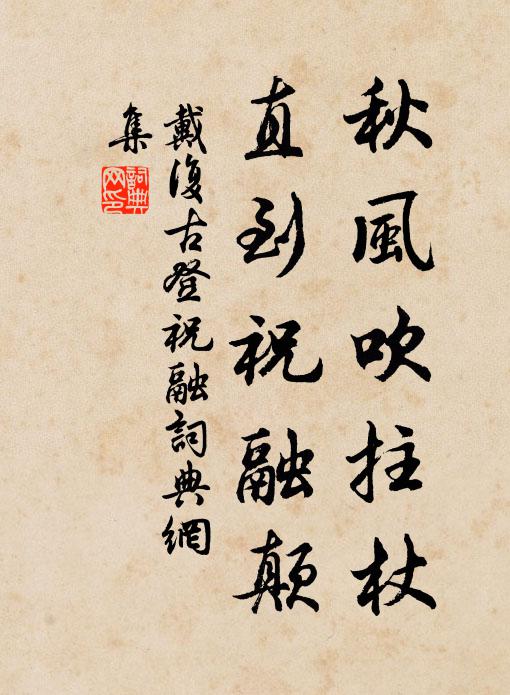 秋風吹拄杖
直到祝融顛
戴復古登祝融詞典網
集
詞典網印